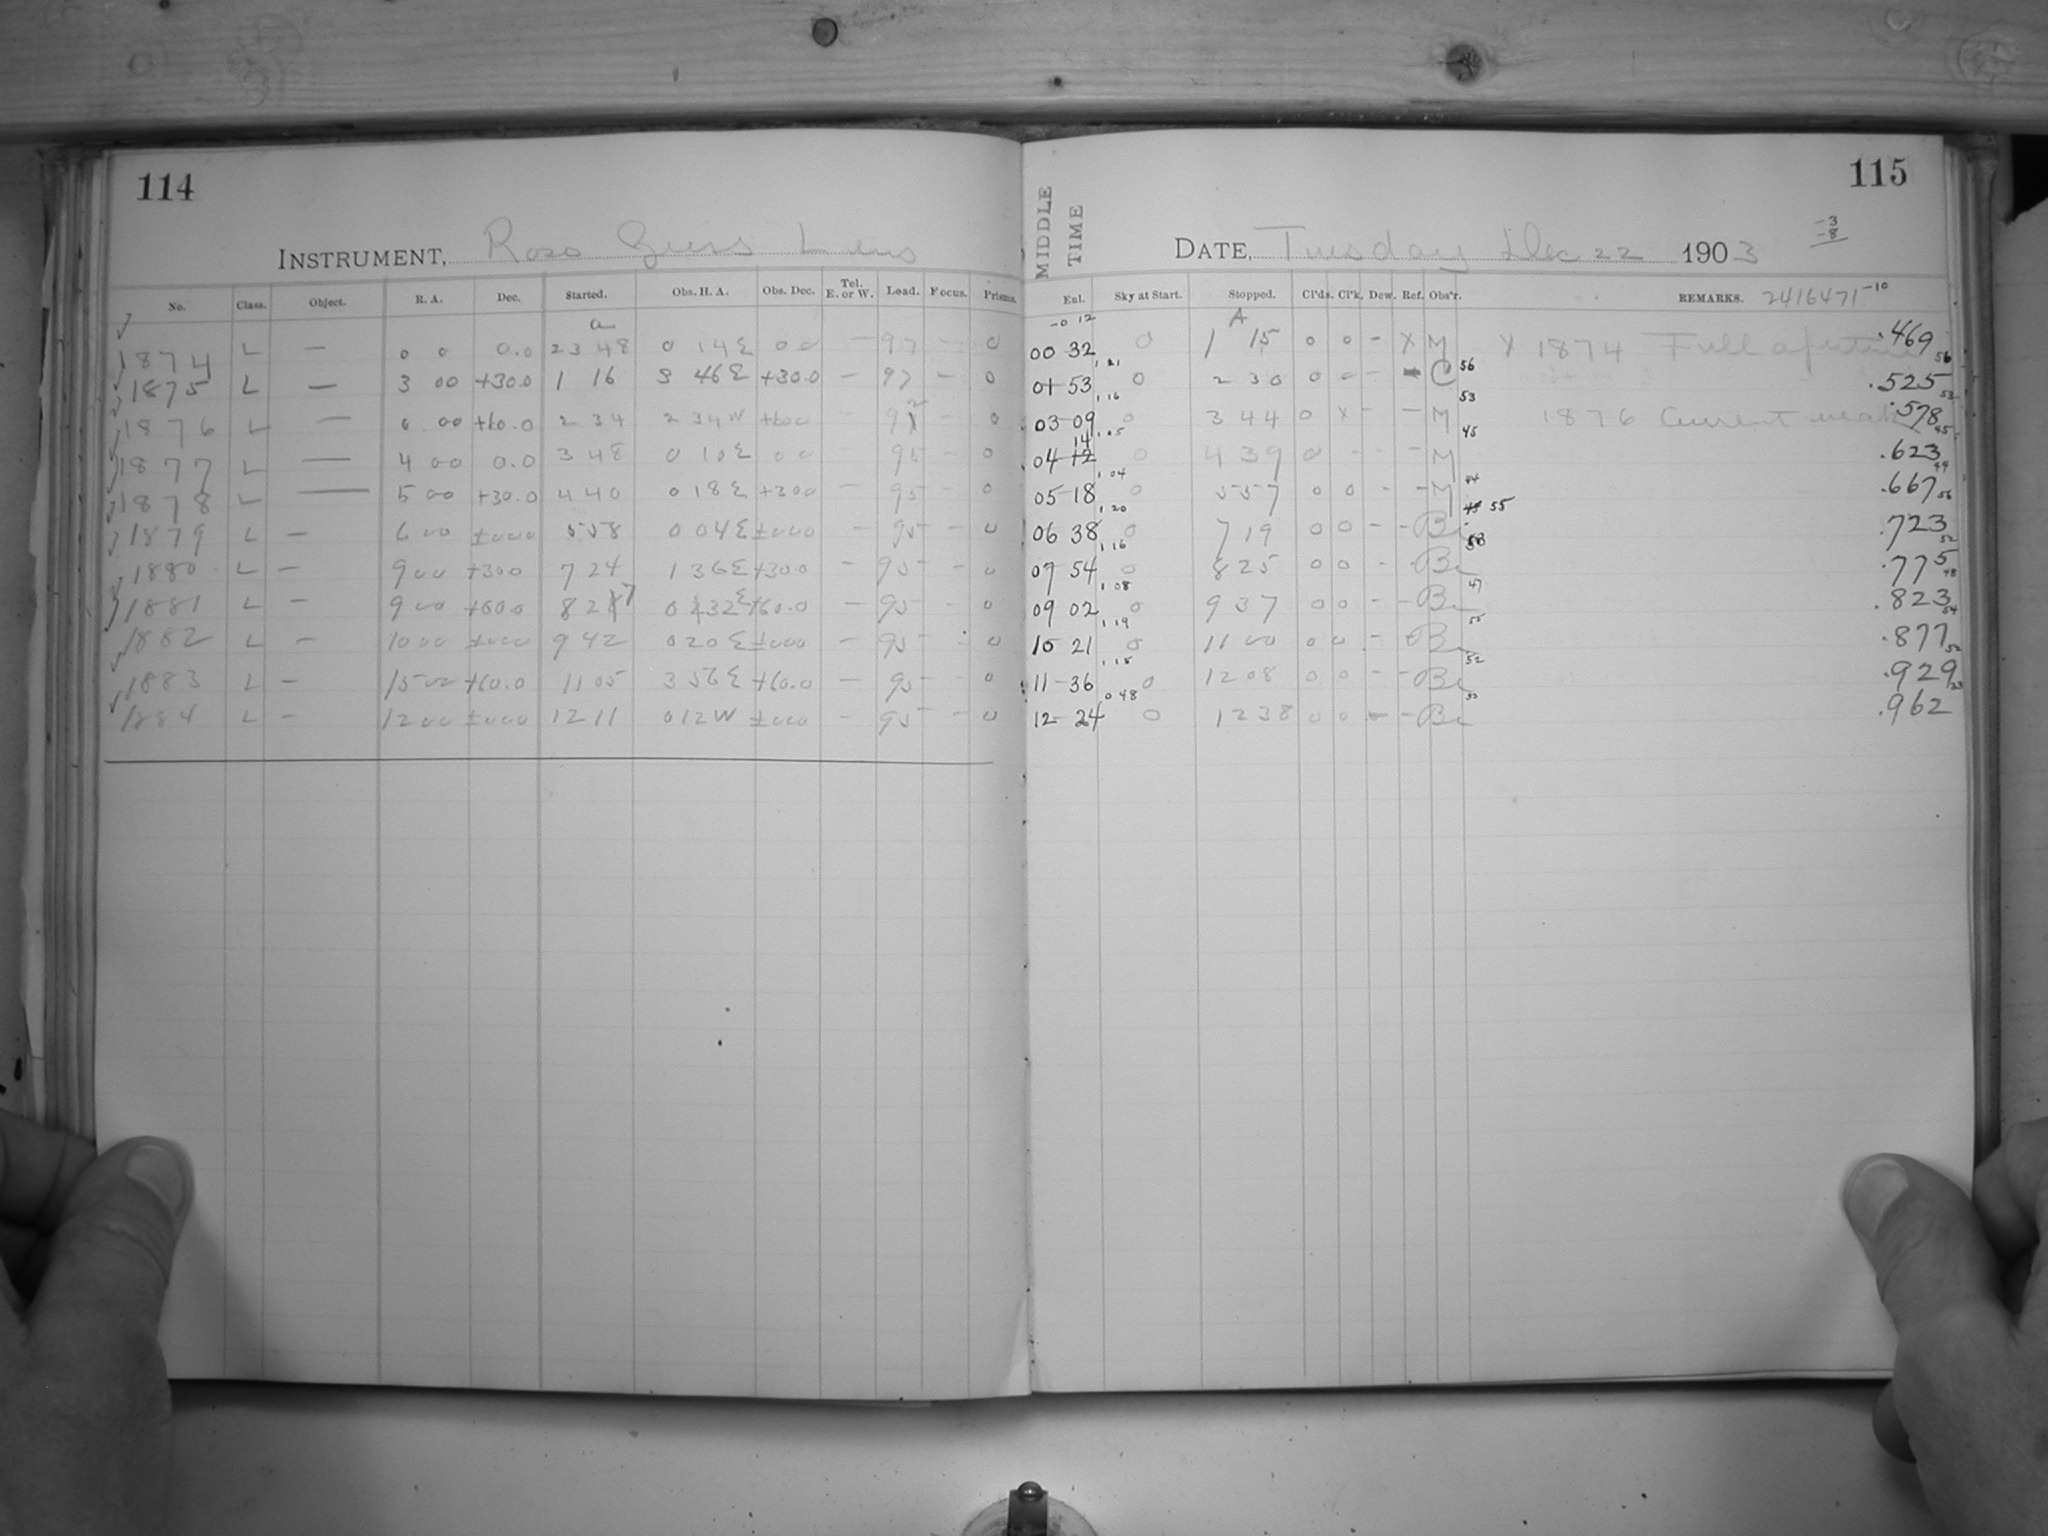 114
INSTRUMENT, Ross Lens
No. Class. Object. R. A. Dec. Started. Obs. H. A. Obs. Dec. Tel. E. or W. Load. Focus. Prisms.
a
1874 L — 0 0 0.0 23 48 0 14 E 0 0 — 97 — 0
1875 L — 3 00 +30.0 1 16 3 46 E +30.0 — 97 — 0
1876 L — 6 00 +60.0 2 34 2 34 W +600 — 0
1877 L — 4 00 0.0 3 48 0 10 E 0 0 — 95 — 0
1878 L — 5 00 +30.0 4 40 0 18 E +300 — 95 — 0
1879 L — 6 00 ±000 5 58 0 04 E ±000 — 95 — 0
1880 L — 9 00 +300 7 24 1 36 E +30.0 — 95 — 0
1881 L — 9 00 +60.0 8 27 0 32 E +60.0 — 95 — 0
1882 L — 10 00 ±000 9 42 0 20 E ±000 — 95 — 0
1883 L — 15 00 +60.0 11 05 3 56 E +60.0 — 95 — 0
1884 L — 12 00 ±000 12 11 0 12 W ±000 — 95 — 0
115
MIDDLE TIME
DATE, Tuesday Dec 22 1903
-3
-8
Ent. Sky at Start. Stopped. Cl'ds. Cl'k. Dew. Ref. Obs'r. REMARKS. 2416471 -10
-0 12 A
00 32 0 1 15 0 0 - X M X 1874 Full aperture .469 56
1 21 56
01 53 0 2 30 0 0 - C .525 53
1 16 53
03 09 0 3 44 0 X - - M 1876 Current weak .578 45
14 1 05 45
04 12 0 4 39 0 - - - M .623 44
1 04 44
05 18 0 5 57 0 0 - - M .667 56
1 20 55
06 38 0 7 19 0 0 - - Be .723 52
1 16 53
07 54 0 8 25 0 0 - - Be .775 48
1 08 47
09 02 0 9 37 0 0 - - Be .823 54
1 19 55
10 21 0 11 00 0 0 - - Be .877 52
1 15 52
11 36 0 12 08 0 0 - - Be .929 33
0 48 33
12 24 0 12 38 0 0 - - Be .962